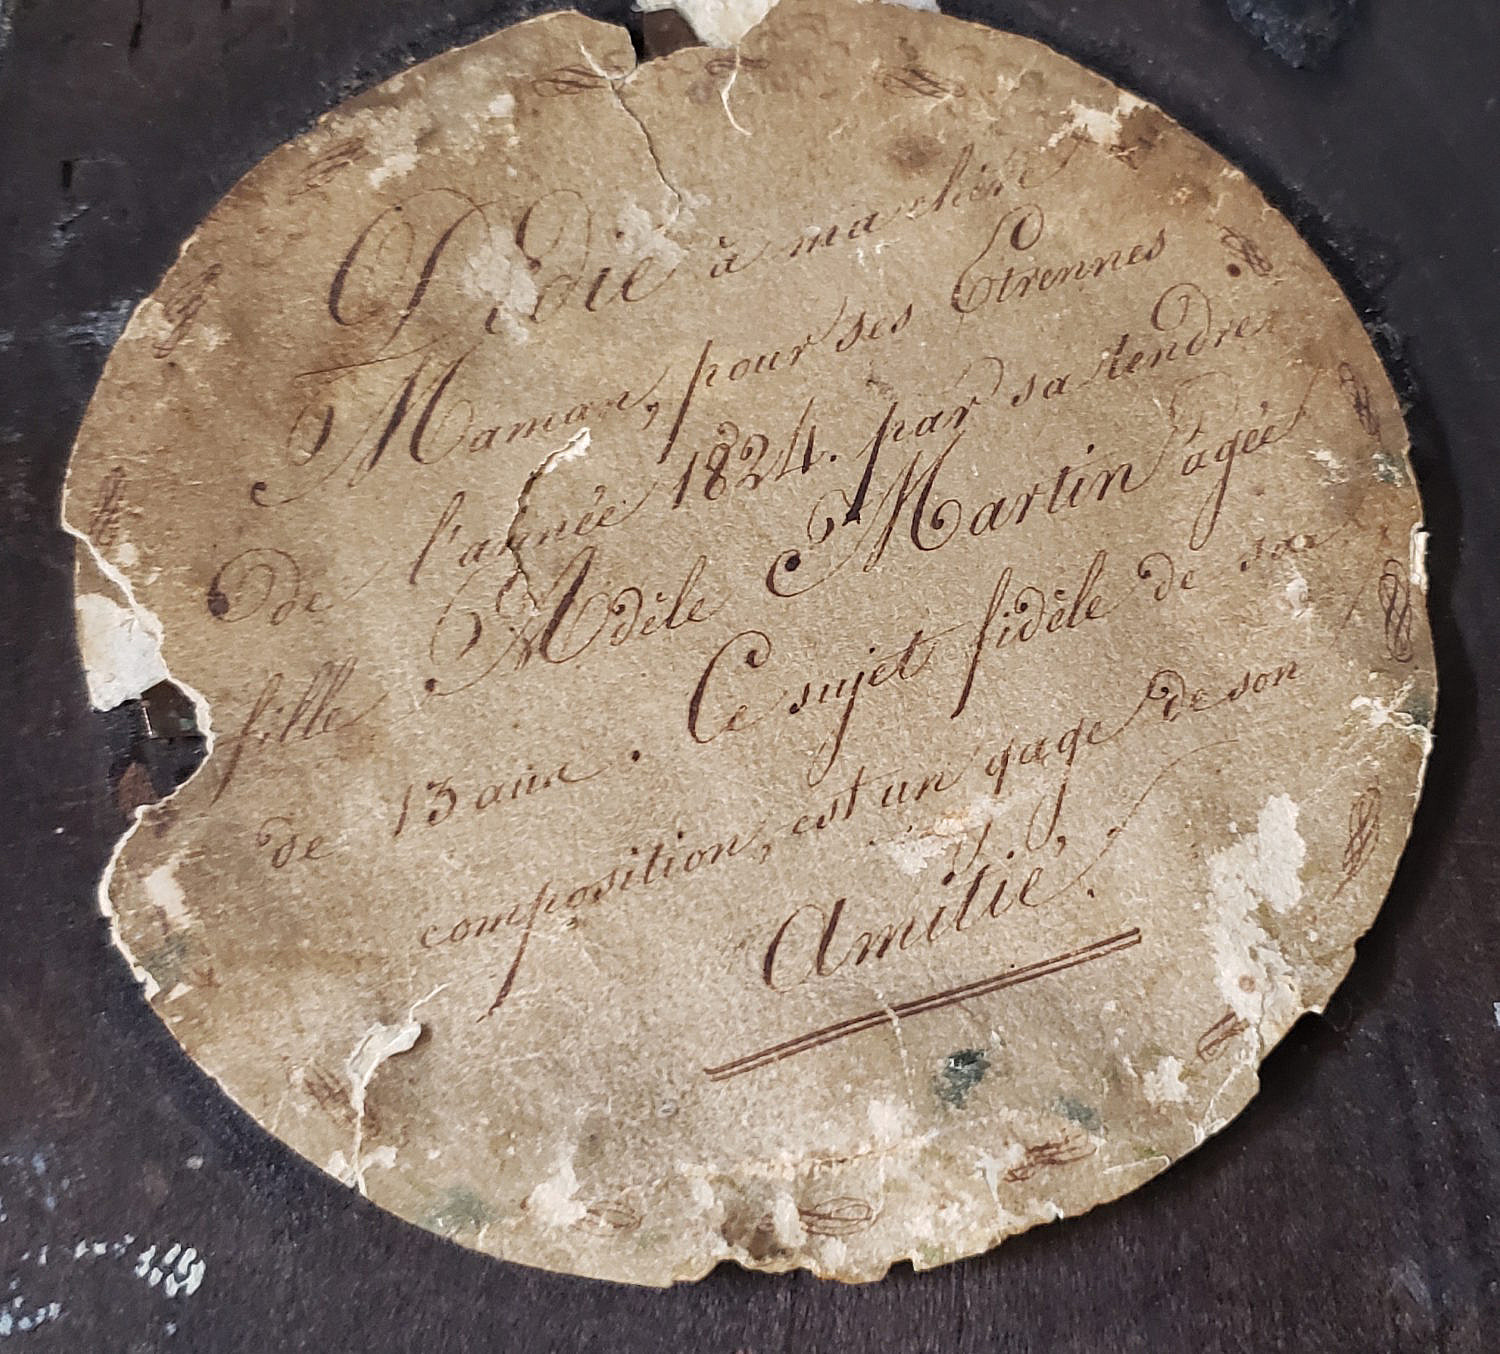 Dédié à ma chère
Maman, pour ses Etrennes
de l'année 1824. par sa tendre
fille Adèle Martin âgée
de 13 ans. Ce sujet fidèle de sa
composition, est un gage de son
Amitié.